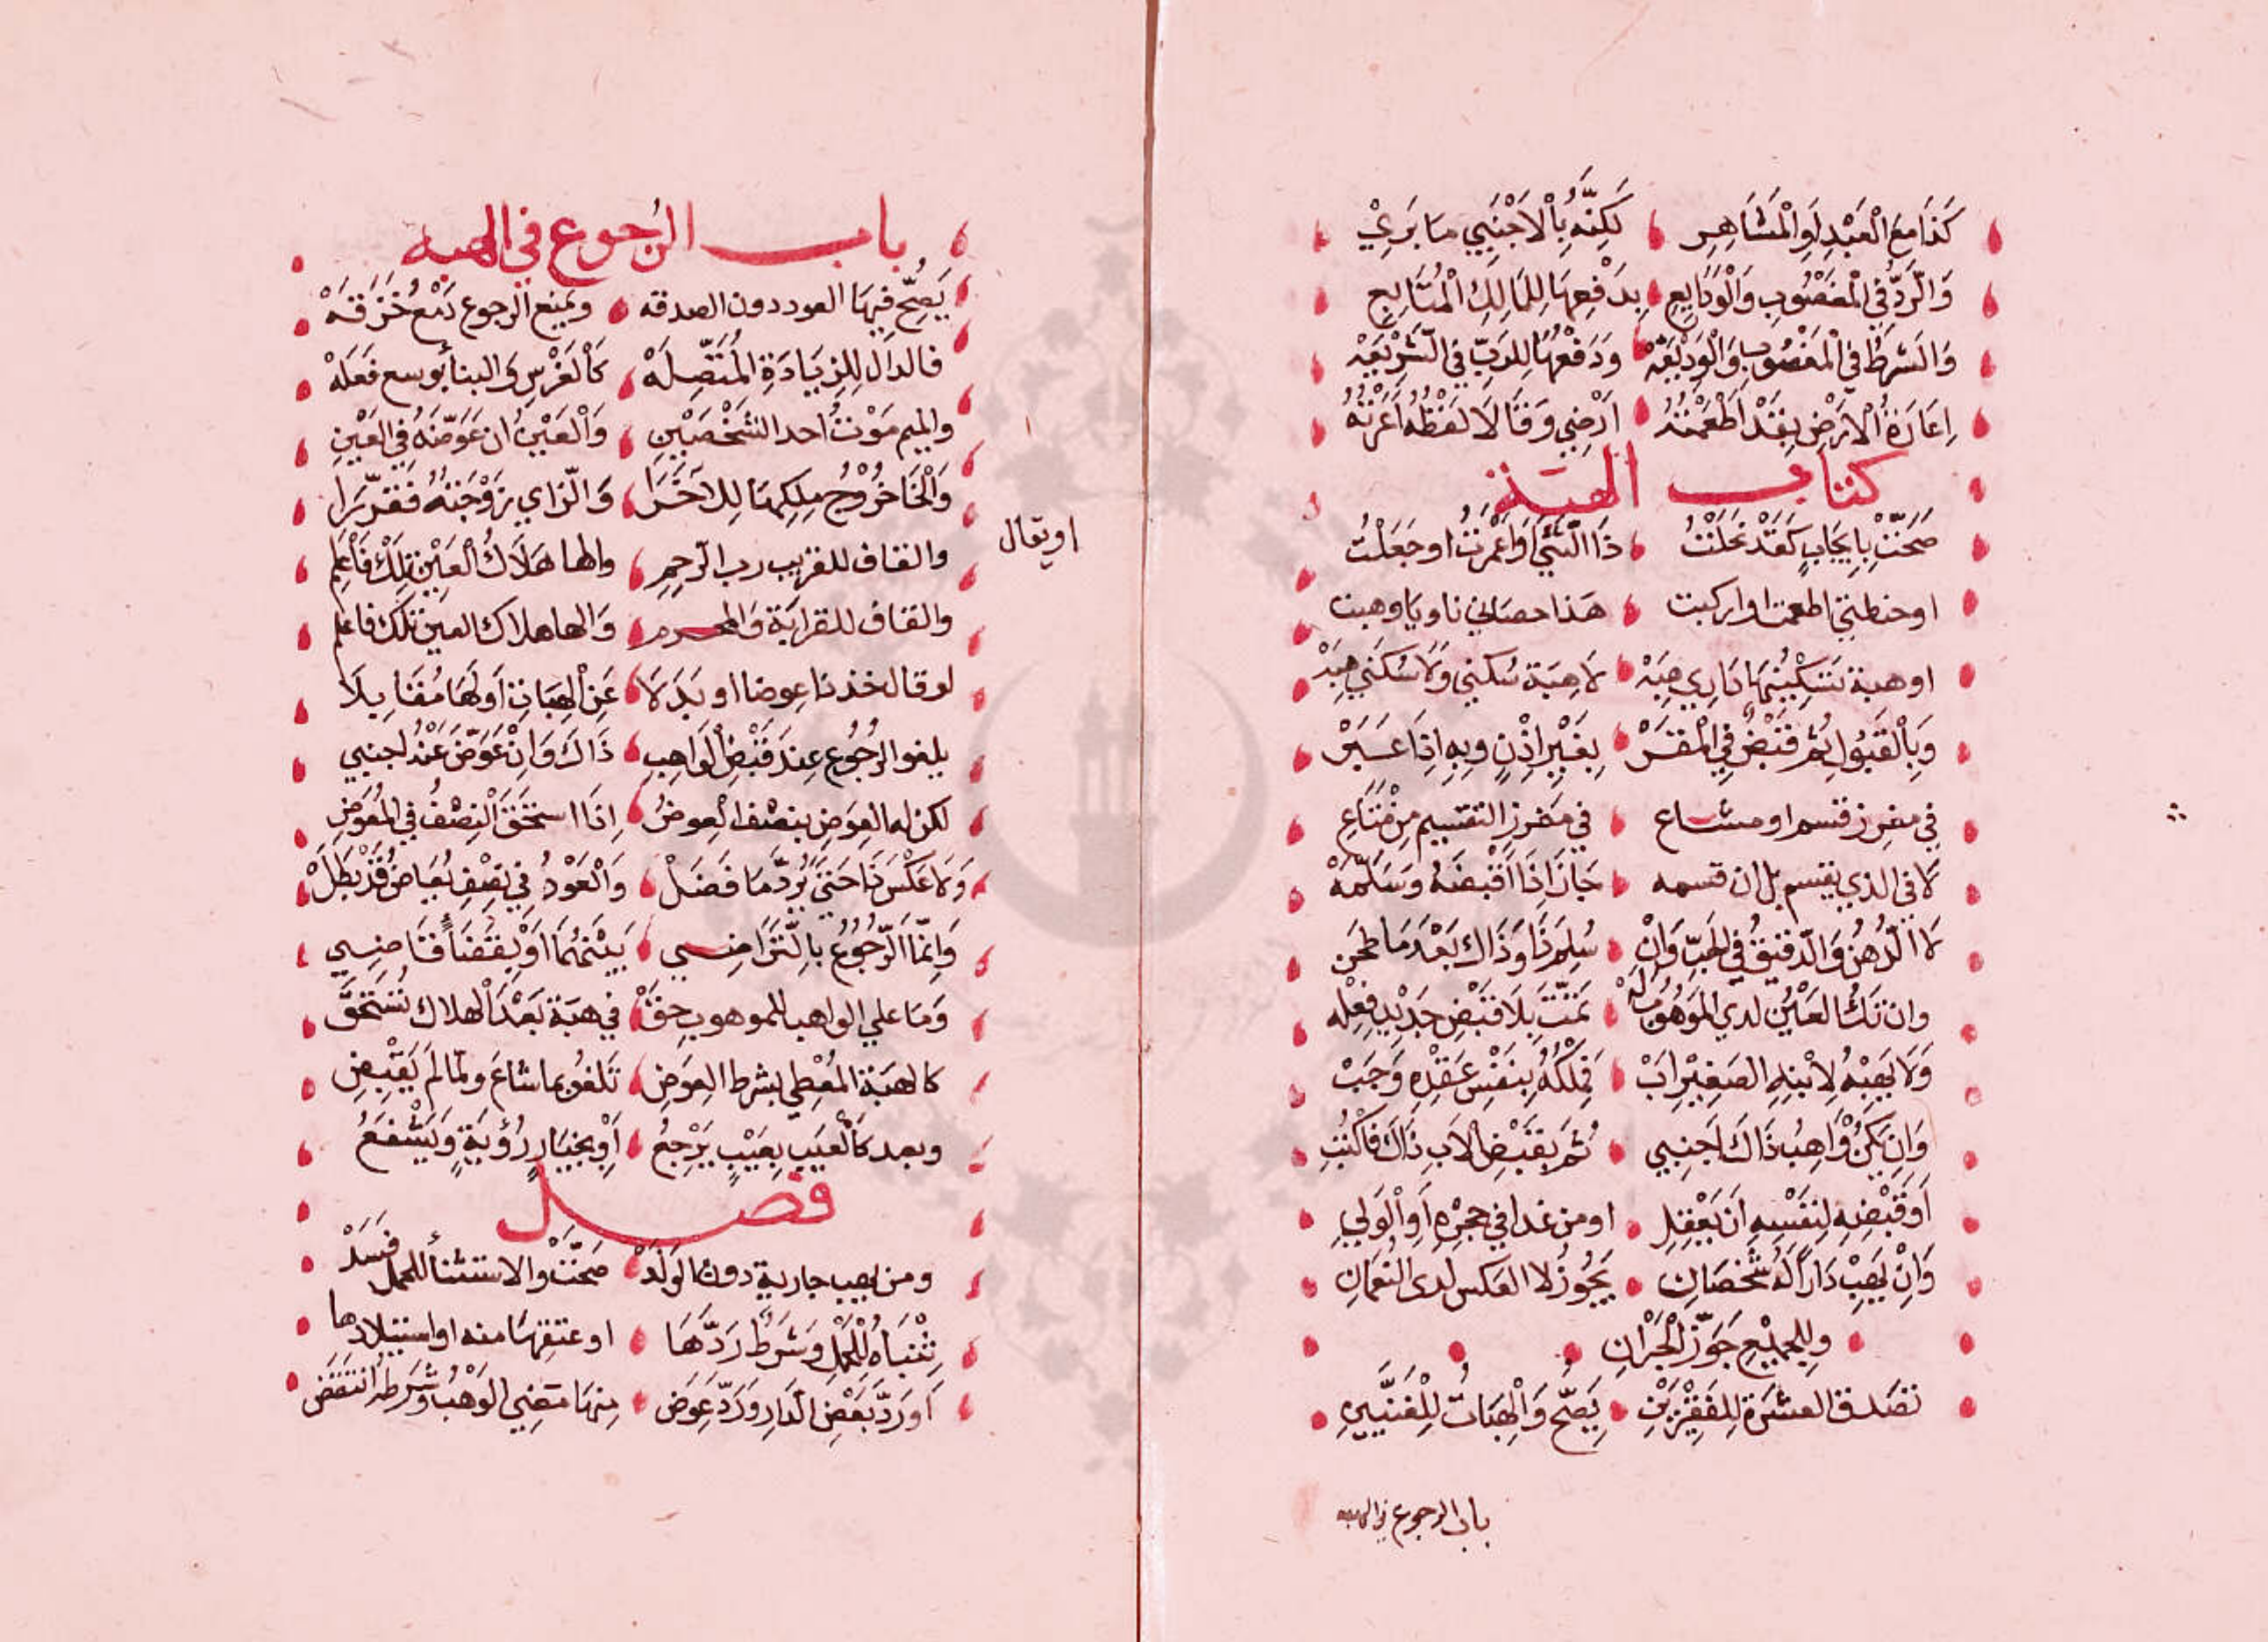 كَذَا مَعَ الْعَبْدِ أَوِ الْمَشَاهِرِ لَكِنَّهُ بِالْاَجْنَبِيِ مَا بَرِيْ
وَالرَّدُّ فِي الْمَغْصُوبِ وَالْوَدَايِعِ بِدَفْعِهَا لِلْمَالِكِ الْمُتَابِعِ
وَالشَرْطُ فِي الْمَغْصُوبِ وَالْوَدِيْعَهْ وَدَفْعُهَا لِلرَبِّ فِي الشَّرِيْعَهْ
اِعَارَةُ الْاَرْضِ بِقَدْ اَطْعَمْتُهُ اَرْضِي وَقَالَا لَفْظُهُ اَعَرْتُهُ
كتاب الهبة
صَحَّتْ بِاِيجَابٍ كَقَدْ نَحَلْتُ ذَا الشَّيْءَ اَوْ اَعْمَرْتُ او جَعَلْتُ
او حنطتي اطعمت او اركبت هَذا حصاني ناويا وهبت
او هبة تَسْكُنُهَا دَارِي هِبَهْ لَا هِبَة سُكني وَلَا سُكني هِبَهْ
وَبِالْقَبُولِ ثُمَّ قَبْضٌ فِي الْمَقَرْ بِغَيْرِ اِذْنٍ وَبِهِ اِذَا عَبَرْ
في مفرز قسم او مشاع في مَفرزِ التقسيم مِنْ مَتَاعِ
لَا في الذي يقسم بل ان قسمه جَازَ اِذَا اَقْبَضَهُ وَسَلَّمَهْ
لَا الدُهْنُ وَالدَّقِيْقُ فِي الحَبِّ وَاِنْ سُلِمَ ذَا وَذَاكَ بَعْدَ مَا طحن
وان تَكُ العَيْنُ لدي المَوهُوبُ لَهْ تَمَّتْ بِلَا قَبْضٍ جَدْيدٍ فِعْله
وَمَا يَهِبْهُ لِابْنِهِ الصَغِيْرِ اَبْ فَمِلْكُهُ بِنَفْسِ عَقْدِهِ وَجَبْ
وَاِنْ يَكُنْ وَاهِبُ ذَاكَ اَجنبي ثُمَّ بِقَبْضِ الْاَبِ ذَاكَ فَاكْتُبِ
اَوْ قَبْضِهِ لِنَفْسِهِ اَنْ يَعْقِلِ او من غدا في حجرِهِ اَوِ الْوَلِي
وَاِنْ يَهِبْ دَاراً لَهُ شَخْصَانِ يَجُوزُ لا العكس لدى النُعْمَانِ
وَلِلْجَمِيْعِ جَوَّزَ الْحَبْرَانِ
تصَدق العشَرَةِ لِلفَقِيْرَيْنِ يَصِحُّ وَالْهِبَاتُ لِلْغَنِيَّيْنِ
باب الرجوع في الهبه
باب الرُجوع في الهبه
يَصِحُّ فِيهَا العود دون الصدقه وَيمنع الرجوع دَمْعُ خَزَقَهْ
فالدال لِلزِيَادَةِ الْمُتَّصِلَهْ كَالغَرْسِ وَالبنا بوسع فَعَلَهْ
والميم مَوْتُ احد الشَخْصَيْنِ وَالْعَيْنُ ان عَوَّضَهُ فِي العَيْنِ
وَالْخَا خُرُوْجُ مِلكِهَا لِلآخَرَا وَالزاي زَوْجَتهُ فَقَرِّرَا
او يقال
والقاف للقريب رب الرَّحِمِ والها هَلَاكُ الْعَيْنِ تِلْكَ فَاعْلَمِ
والقاف للقرابَة وَالمحرم وَالها هلاك العين تلك فاعلم
لو قال خذ ذا عوضا او بَدَلَا عَنِ الْهِبَاتِ اَوْ لَهَا مُقَابِلَا
يلغو الرُجُوع عِندَ قَبْضِ الْوَاهِبِ ذَاكَ وَاِنْ عَوَّضَ عَنْهُ اجنبي
لكن له العِوَضِ بنصف الْعِوضُ اِذَا استحَقَ النِصْفُ فِي المُعَوَّضِ
وَمَا عَكْسَ ذَا حَتى يُرَدَّ مَا فَضَلْ وَالْعَوْدُ فِي نِصْفٍ يُعَاضُ قَدْ بَطَلْ
وَاِنَّمَا الرُّجُوْعُ بِالتَّرَاضِي بَيْنَهُمَا اَوْ بِقَضَاءِ قَاضِي
وَمَا علي الواهب للموهوب حَقْ في هبَة بَعْدَ الهلاك تُسْتَحَقْ
كالهبَة الْمُعْطِي بشرط العِوَضِ تَلغُو بما شاعَ ولمَّا لَم يَقبِضِ
وبعد كَالْعَيبِ بِعَيْبٍ يَرْجِعُ اَوْ بِخيَارِ رُؤيَةٍ وَيَشْفَعُ
فصل
ومن يهب جارية دون الوَلَدْ صَحَّتْ والاستثنأ للحمل فَسَدْ
ثِنْيَاهُ لِلْحَمْلِ وَشَرْطُ رَدِّهَا او عتقِهَا منه او استيلادها
اَو رَدَّ بَعْضَ الدَارِ وَرَدَّ عِوَض مِنهَا مَضِي الوَهْبُ وَشَرطه انتَقَض